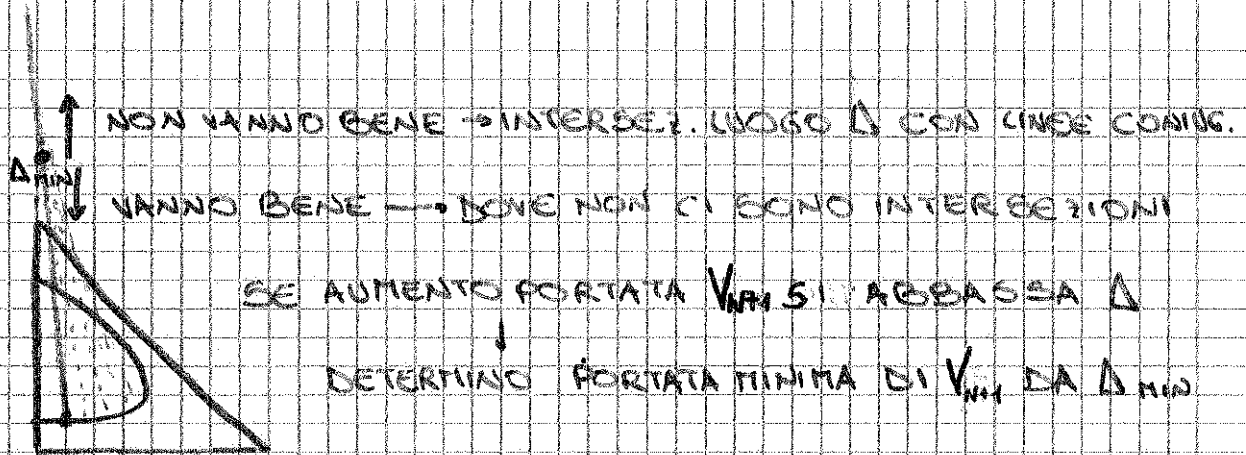 NON VANNO BENE → INTERSEZ. LUOGO Δ CON LINEE CONIUG.
Δ MIN
VANNO BENE → DOVE NON CI SONO INTERSEZIONI
SE AUMENTO PORTATA V_{N+1} SI ABBASSA Δ
↓
DETERMINO PORTATA MINIMA DI V_{N+1} DA Δ MIN